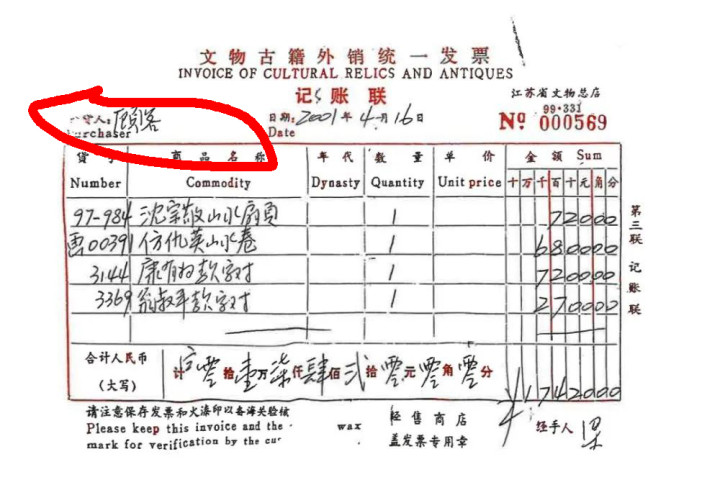 文物古籍外销统一发票
INVOICE OF CULTURAL RELICS AND ANTIQUES
记账联
江苏省文物总店
货人:顾客 日期:2001年4月16日 99·331
Purchaser Date Nº 000569
货 商品名称 年代 数量 单价 金额 Sum
Number Commodity Dynasty Quantity Unit price 十万千百十元角分
97-984 沈宗敬山水扇页 1 72000
画00391 仿仇英山水卷 1 680000
3144 康有为款字对 1 720000
3369 翁叔平款字对 1 270000
合计人民币 计 零拾壹万柒仟肆佰贰拾零元零角零分
(大写) ¥1742000
请注意保存发票和火漆印以备海关验核 经售商店
Please keep this invoice and the wax 盖发票专用章 经手人
mark for verification by the cu
第三联 记账联